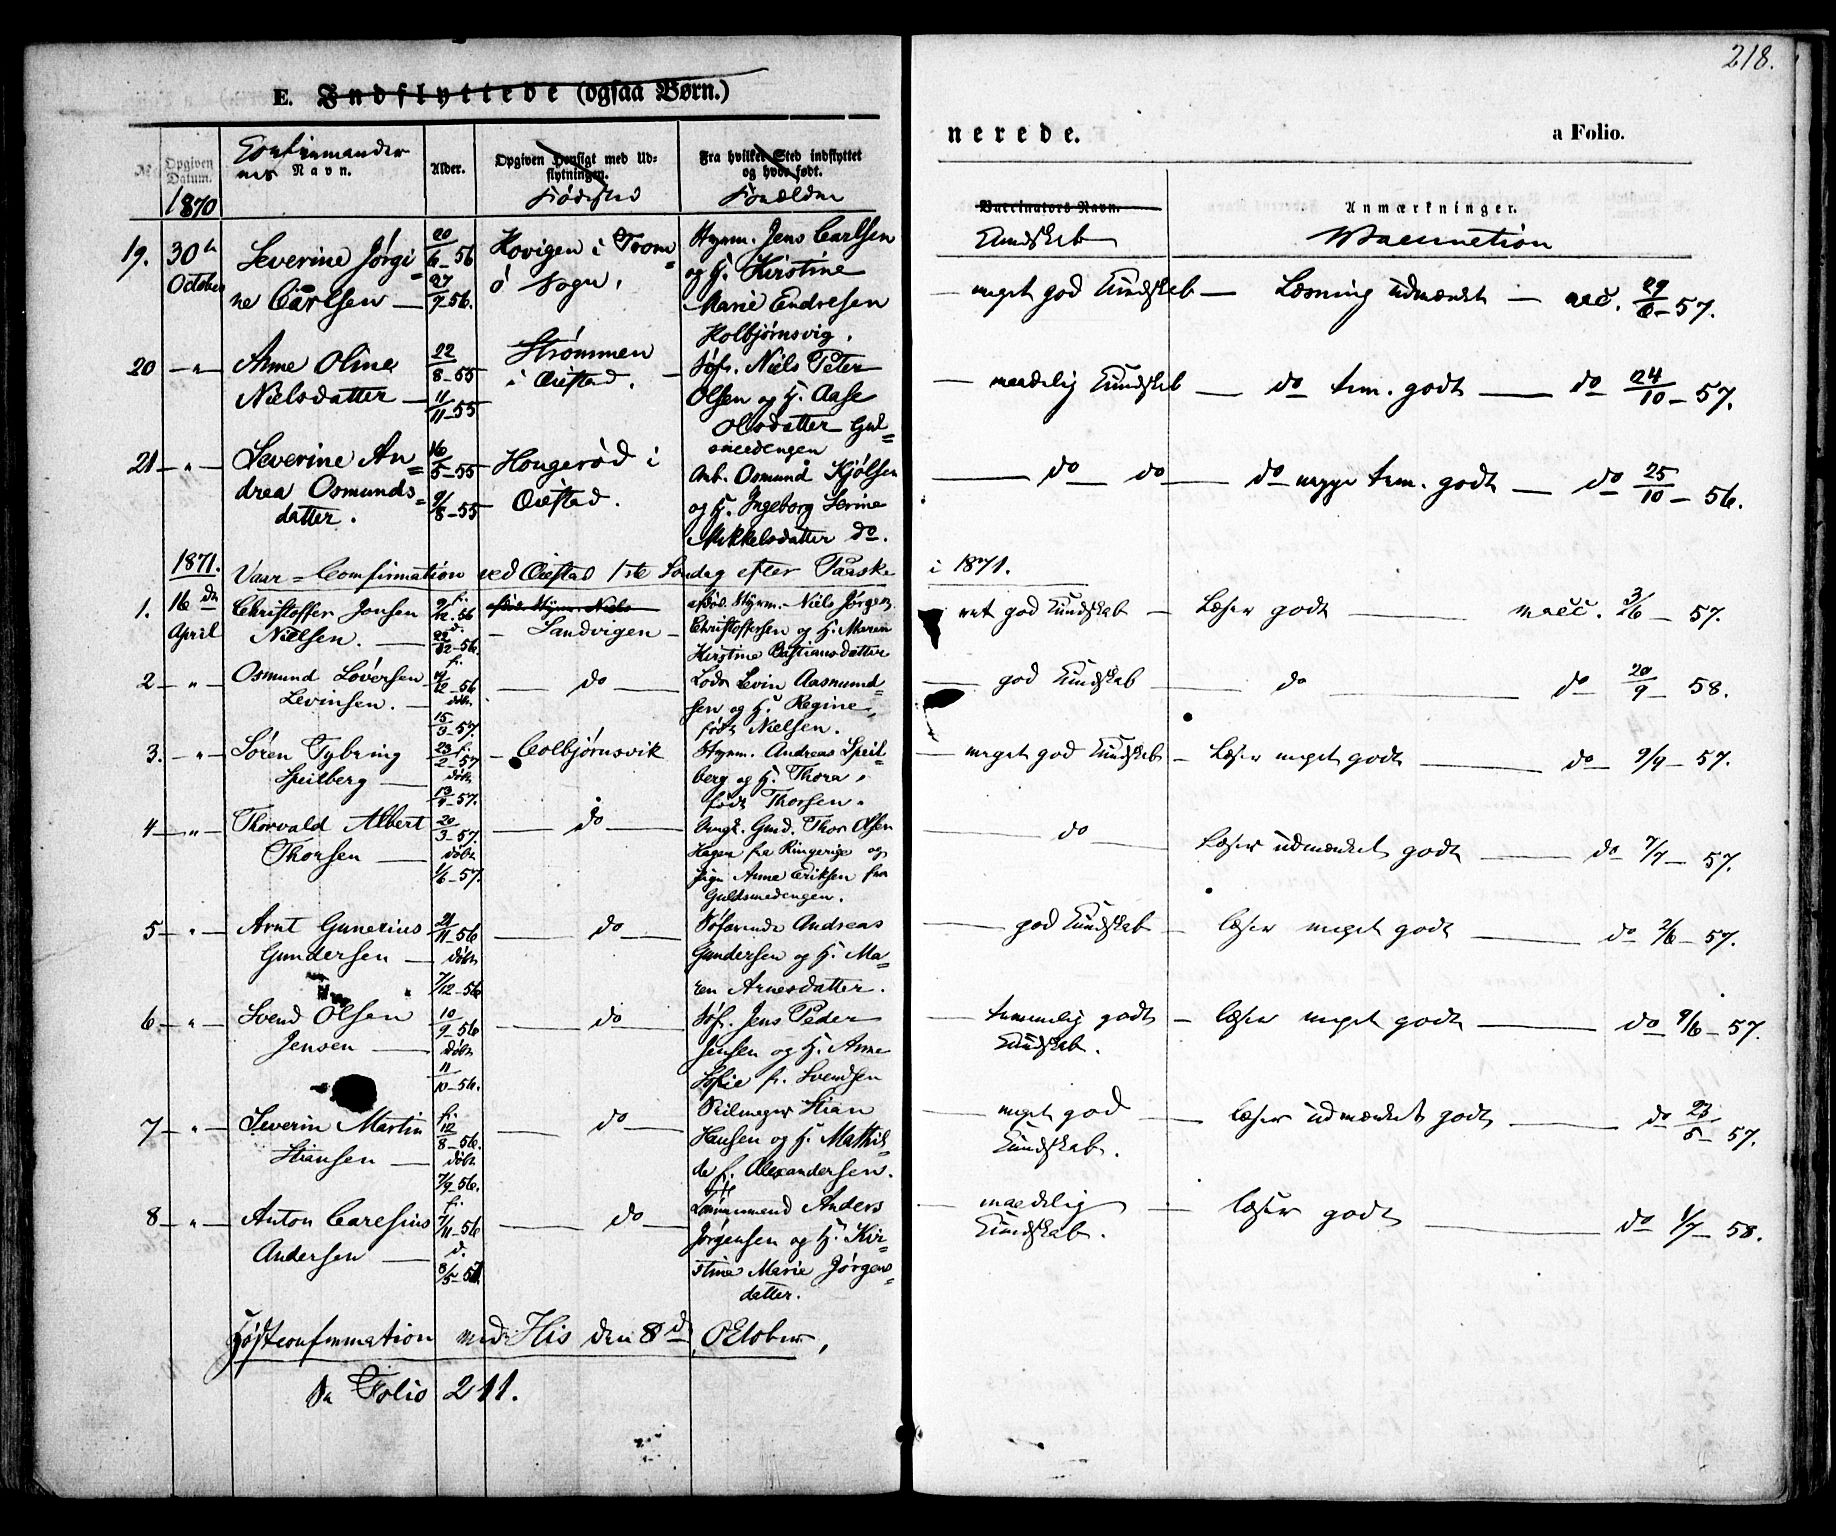 218.
E. Indflyttede (ogsaa Børn.)
nerede. a Folio.
No. Opgiven Datum. Confirmandernes Navn. Alder. Opgiven Hensigt med Udflytningen. Fra hvilket Sted indflyttet og hvor født.
Fødested Forældre
Vaccinators Navn. Anmærkninger.
Kundskab Vaccination
1870
19. 30te Severine Jørgi= 20/6-56 Hovigen i Trom= Styrm. Jens Carlsen
October ne Carlsen — 27/7-56. ø Sogn, og H. Kirstine
Marie Endresen
Holbjørnsvig.
— meget god Kundskab — Læsning udmærket — vacc. 29/6-57.
20 —"— Anne Oline 22/8-55 Strømmen Søf. Niels Peter
Nielsdatter — 11/11-55 i Øiestad. Olsen og H. Aase
Olsdatter Gul=
smedengen
— maadelig Kundskab — do tem. godt — do 24/10-57.
21 —"— Severine An= 16/5-55 Hougerød i Arb. Osmund Kjølsen
drea Osmunds= 9/8-55 Øiestad. og H. Ingeborg Serine
datter. Mikkelsdatter do.
— do do — do neppe tem. godt — do 25/10-56.
1871. Vaar=Comfirmation ved Øiestad 1ste Søndag efter Paaske i 1871.
1. 16de Christoffer Jonsen f. 9/12.56 afdød. Styrm. Niels afdød. Styrm. Niels Jørgen
April Nielsen. — d. 22/12-56. Sandvigen — Christoffersen og H. Maren
Kirstine Bastiansdatter
ret god Kundskab — Læser godt — vacc. 3/6-57.
2 —"— Osmund Løversen f. 4/12-56 — do — Lods Levin Aasmund=
Levinsen. — døbt 15/3-57. sen og H. Regine,
født Nielsen.
— god Kundskab — do — do 20/9-58.
3. —"— Søren Tybring 23/2-57 f. — Colbjørnsvik Styrm. Andreas Speil=
Speilberg — døbt 13/4-57. berg og H. Thora,
født Thorsen.
— meget god Kundskab — Læser meget godt — do 9/9-57.
4 —"— Thorvald Albert 20/3-57. — do — Ungk. Gmd. Thor Olsen
Thorsen — døbt 1/6-57. Hagen fra Ringerige og
Pige Anne Eriksen fra
Guldsmedengen.
— do — Læser udmærket godt — do 7/7-57.
5 —"— Arnt Gunerius 21/11-56 — do — Søfarende Andreas
Gundersen — døbt 7/12-56 Gundersen og H. Ma=
ren Arnesdatter.
— god Kundskab — læser meget godt — do 2/6-57.
6 —"— Svend Olsen 10/9-56 — do — Søf. Jens Peder
Jensen — døbt 11/10-56. Jensen og H. Anne
Sofie f. Svendsen
— temmelig godt — læser meget godt — do 9/6-57.
Kundskab.
7 —"— Severin Martin f. 12/8-56. — do — Seilmager Stian
Stiansen — døbt 7/9-56. Hansen og H. Mathil=
de f. Alexandersen.
— meget god — læser udmærket godt — do 23/5-57.
Kundskab.
8 —"— Anton Carelius f. 7/11-56 — do — Anders
Andersen — d. 3/5-57. Jørgensen og H. Kir=
stine Marie Jørgens=
datter.
— maadelig læser godt — do 1/7-58.
Kundskab.
Høstconfirmation ved His den 8de October,
se Folio 211.